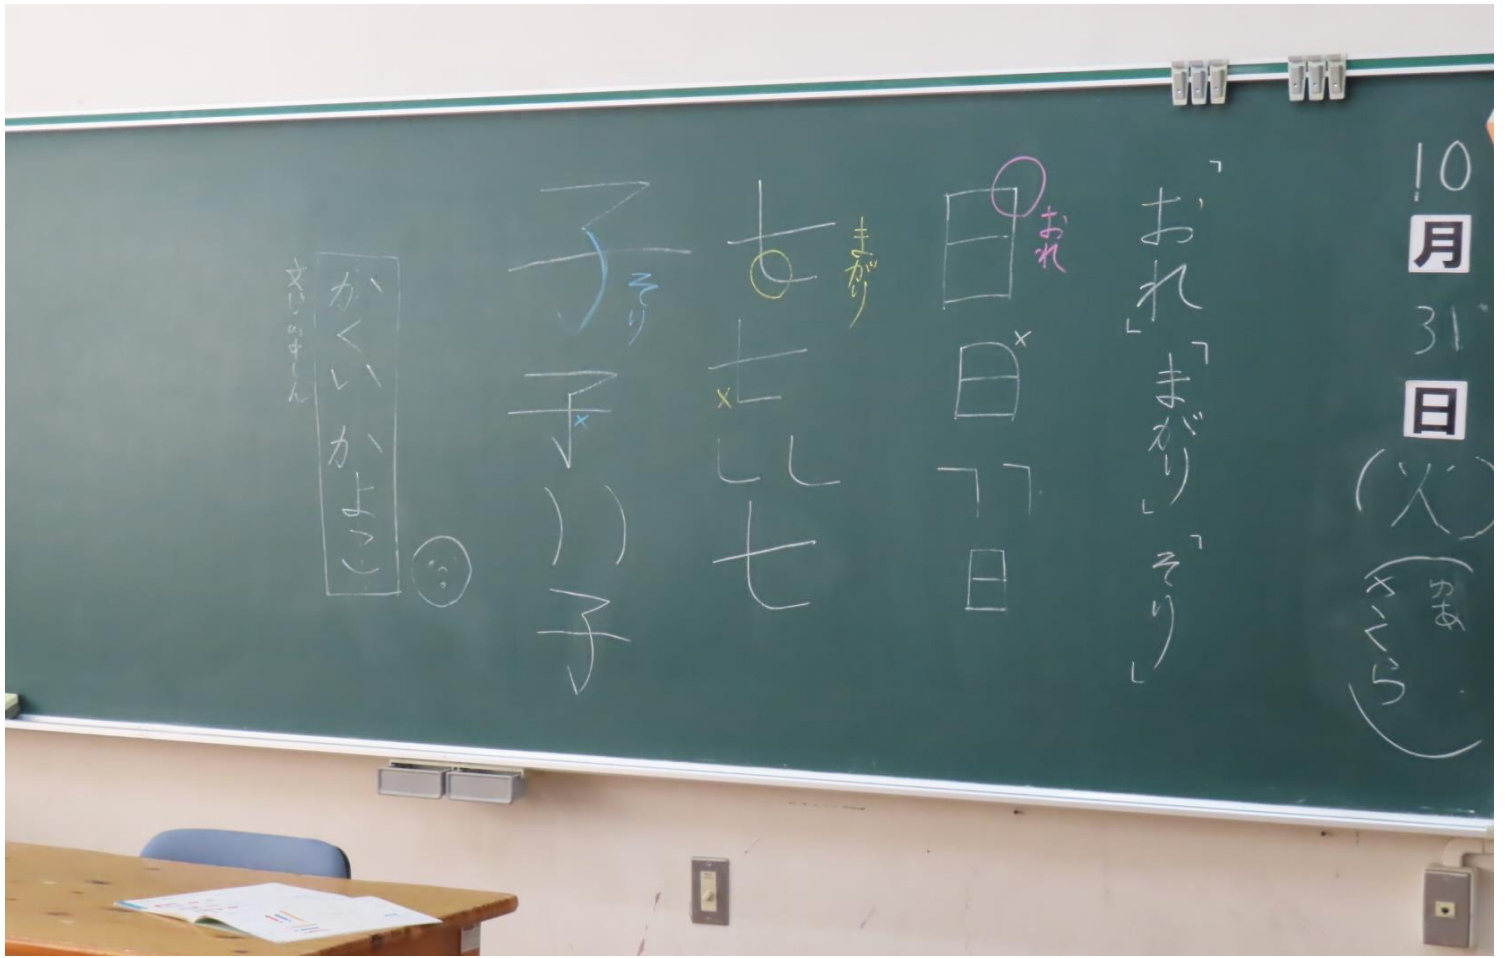 10月31日(火)
さくら
「おれ」「まがり」「そり」
日
おれ
日
×
日
七
まがり
七
×
七
子
そり
子
×
子
かくいかよこ